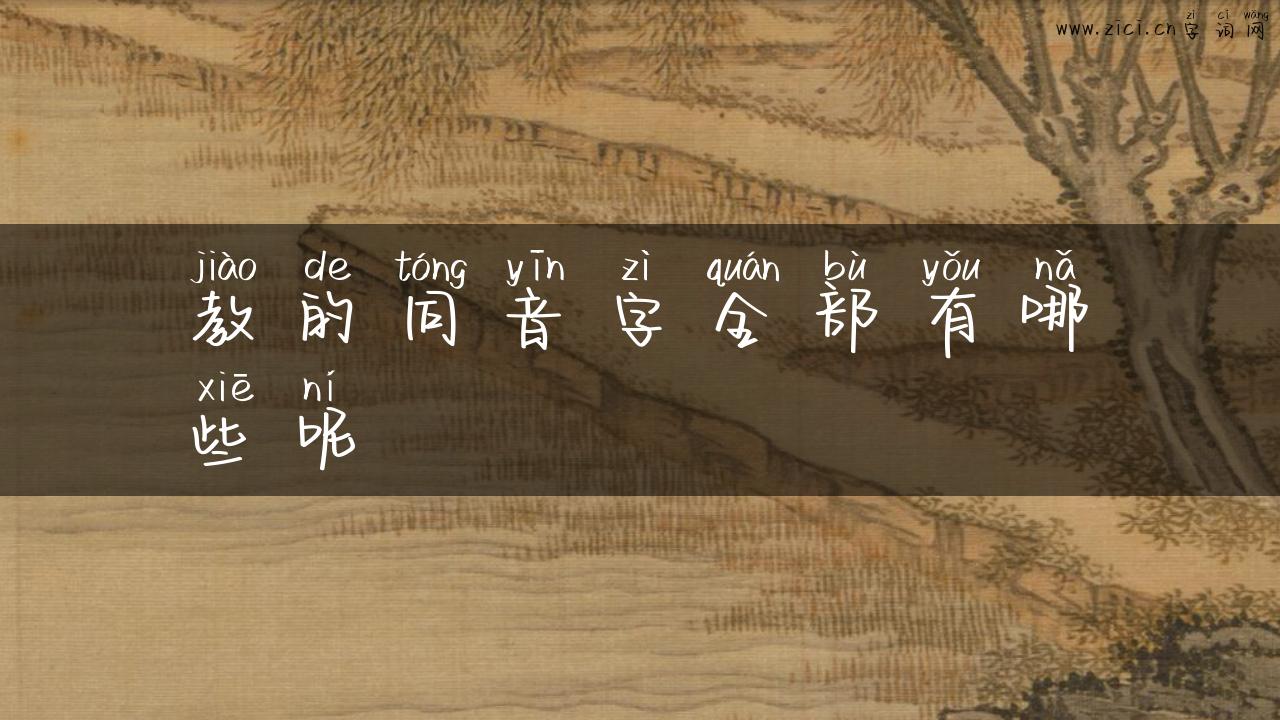 zì cí wǎng
www.zici.cn字词网
jiào de tóng yīn zì quán bù yǒu nǎ
教的同音字全部有哪
xiē ní
些呢